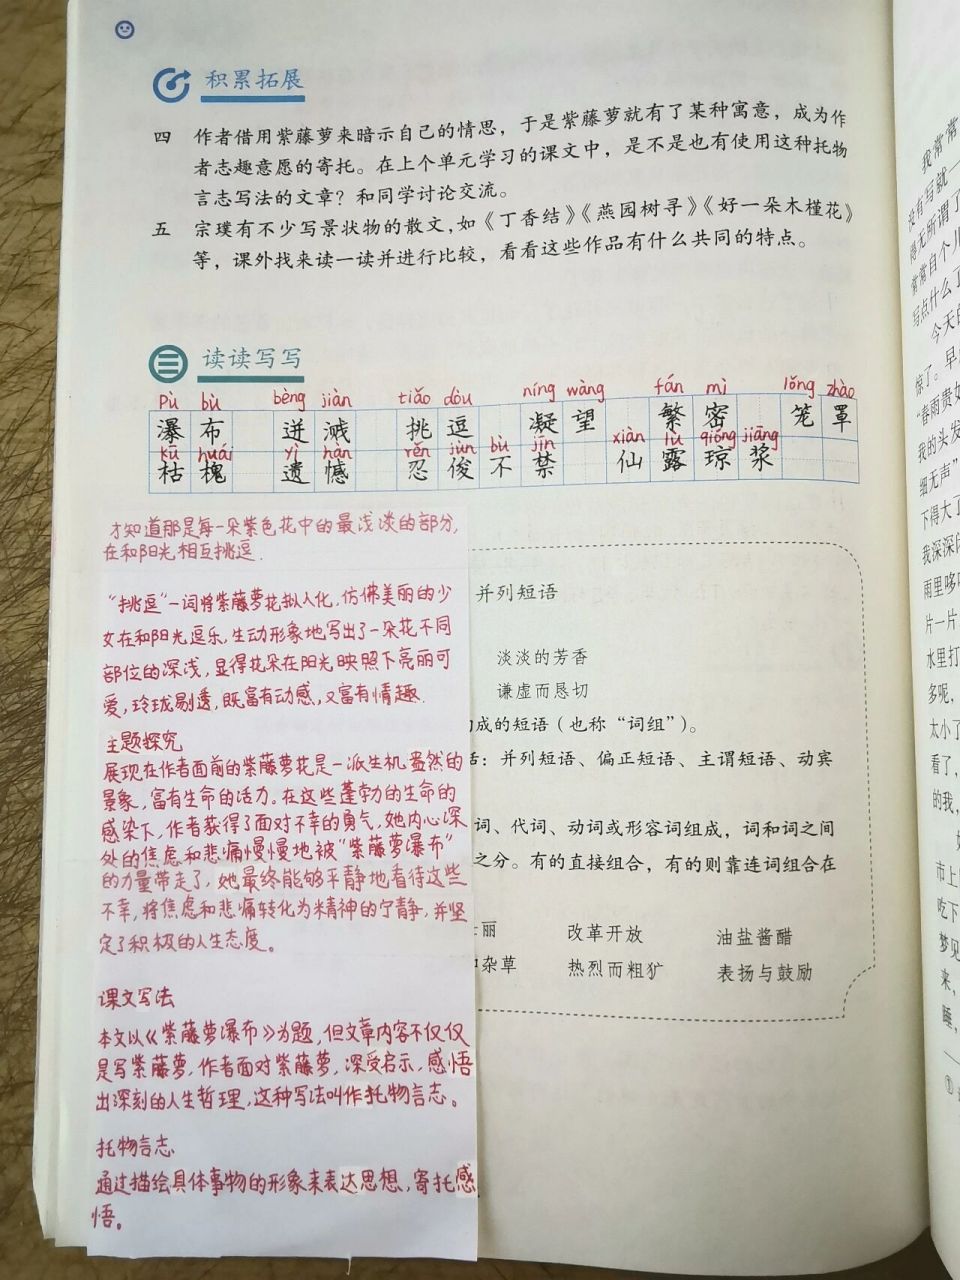 积累拓展
四 作者借用紫藤萝来暗示自己的情思，于是紫藤萝就有了某种寓意，成为作
者志趣意愿的寄托。在上个单元学习的课文中，是不是也有使用这种托物
言志写法的文章？和同学讨论交流。
五 宗璞有不少写景状物的散文，如《丁香结》《燕园树寻》《好一朵木槿花》
等，课外找来读一读并进行比较，看看这些作品有什么共同的特点。
读读写写
Pù bù bèng jiàn tiǎo dòu níng wàng fán mì lǒng zhào
瀑布 迸溅 挑逗 凝望 繁密 笼罩
kū huái yì hàn rěn jùn bù jīn xiàn lù qióng jiāng
枯槐 遗憾 忍俊不禁 仙露琼浆
才知道那是每一朵紫色花中的最浅淡的部分，
在和阳光相互挑逗.
"挑逗"一词将紫藤萝花拟人化，仿佛美丽的少
女在和阳光逗乐，生动形象地写出了一朵花不同
部位的深浅，显得花朵在阳光映照下亮丽可
爱，玲珑剔透，既富有动感，又富有情趣.
主题探究
展现在作者面前的紫藤萝花是一派生机盎然的
景象，富有生命的活力。在这些蓬勃的生命的
感染下，作者获得了面对不幸的勇气，她内心深
处的焦虑和悲痛慢慢地被"紫藤萝瀑布"
的力量带走了，她最终能够平静地看待这些
不幸，将焦虑和悲痛转化为精神的宁静，并坚
定了积极的人生态度。
课文写法
本文以《紫藤萝瀑布》为题，但文章内容不仅仅
是写紫藤萝，作者面对紫藤萝，深受启示，感悟
出深刻的人生哲理，这种写法叫作托物言志。
托物言志
通过描绘具体事物的形象来表达思想，寄托感
悟。
并列短语
淡淡的芳香
谦虚而恳切
成的短语（也称“词组”）。
：并列短语、偏正短语、主谓短语、动宾
词、代词、动词或形容词组成，词和词之间
之分。有的直接组合，有的则靠连词组合在
丽 改革开放 油盐酱醋
杂草 热烈而粗犷 表扬与鼓励
我常常
没有写就一
得无所谓了
常常自个儿
写点什么了
今天的
惊了。早
“春雨贵如
我的头发
细无声”
下得大了
我深深
雨里哆
片一片
水里打
多呢，
太小了
看了，
的我，
市上
吃下
梦见
来，
睡，
①